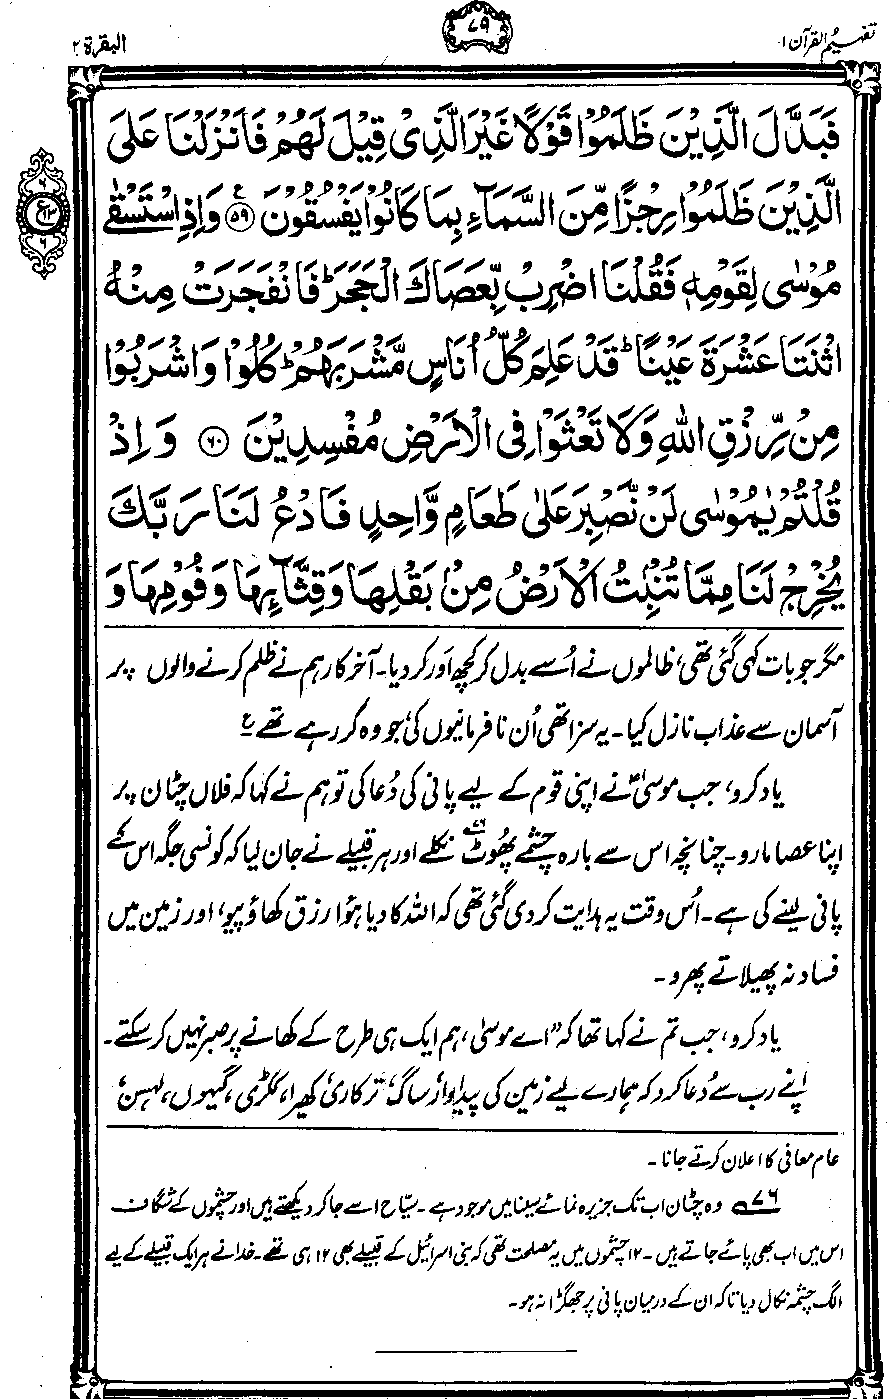 تفہیم القرآن ۱
۷۹
البقرۃ ۲
فَبَدَّلَ الَّذِیْنَ ظَلَمُوْا قَوْلًا غَیْرَ الَّذِیْ قِیْلَ لَهُمْ فَاَنْزَلْنَا عَلَی
الَّذِیْنَ ظَلَمُوْا رِجْزًا مِّنَ السَّمَآءِ بِمَا كَانُوْا یَفْسُقُوْنَ ﴿۵۹﴾ ع وَاِذِ اسْتَسْقٰی
مُوْسٰی لِقَوْمِهٖ فَقُلْنَا اضْرِبْ بِّعَصَاكَ الْحَجَرَ ؕ فَانْفَجَرَتْ مِنْهُ
اثْنَتَا عَشْرَةَ عَیْنًا ؕ قَدْ عَلِمَ كُلُّ اُنَاسٍ مَّشْرَبَهُمْ ؕ كُلُوْا وَاشْرَبُوْا
مِنْ رِّزْقِ اللّٰهِ وَلَا تَعْثَوْا فِی الْاَرْضِ مُفْسِدِیْنَ ﴿۶۰﴾ وَاِذْ
قُلْتُمْ یٰمُوْسٰی لَنْ نَّصْبِرَ عَلٰی طَعَامٍ وَّاحِدٍ فَادْعُ لَنَا رَبَّكَ
یُخْرِجْ لَنَا مِمَّا تُنْۢبِتُ الْاَرْضُ مِنْۢ بَقْلِهَا وَقِثَّآئِهَا وَفُوْمِهَا وَ
مگر جو بات کہی گئی تھی، ظالموں نے اُسے بدل کر کچھ اَور کر دیا۔ آخر کار ہم نے ظلم کرنے والوں پر
آسمان سے عذاب نازل کیا۔ یہ سزا تھی اُن نافرمانیوں کی، جو وہ کر رہے تھے ع
یاد کرو، جب موسیٰؑ نے اپنی قوم کے لیے پانی کی دُعا کی تو ہم نے کہا کہ فلاں چٹان پر
اپنا عصا مارو۔ چنانچہ اس سے بارہ چشمے پھُوٹ۷۶ نکلے اور ہر قبیلے نے جان لیا کہ کونسی جگہ اس کے
پانی لینے کی ہے۔ اُس وقت یہ ہدایت کر دی گئی تھی کہ اللہ کا دیا ہؤا رزق کھاؤ پیو، اور زمین میں
فساد نہ پھیلاتے پھرو۔
یاد کرو، جب تم نے کہا تھا کہ "اے موسیٰ، ہم ایک ہی طرح کے کھانے پر صبر نہیں کر سکتے۔
اپنے رب سے دُعا کرو کہ ہمارے لیے زمین کی پیداوار ساگ، ترکاری، کھیرا، ککڑی، گیہوں، لہسن،
عام معافی کا اعلان کرتے جانا۔
۷۶ وہ چٹان اب تک جزیرہ نمائے سینا میں موجود ہے۔ سیّاح اسے جا کر دیکھتے ہیں اور چشموں کے شگاف
اس میں اب بھی پائے جاتے ہیں۔ ۱۲ چشموں میں یہ مصلحت تھی کہ بنی اسرائیل کے قبیلے بھی ۱۲ ہی تھے۔ خدا نے ہر ایک قبیلے کے لیے
الگ چشمہ نکال دیا تاکہ ان کے درمیان پانی پر جھگڑا نہ ہو۔